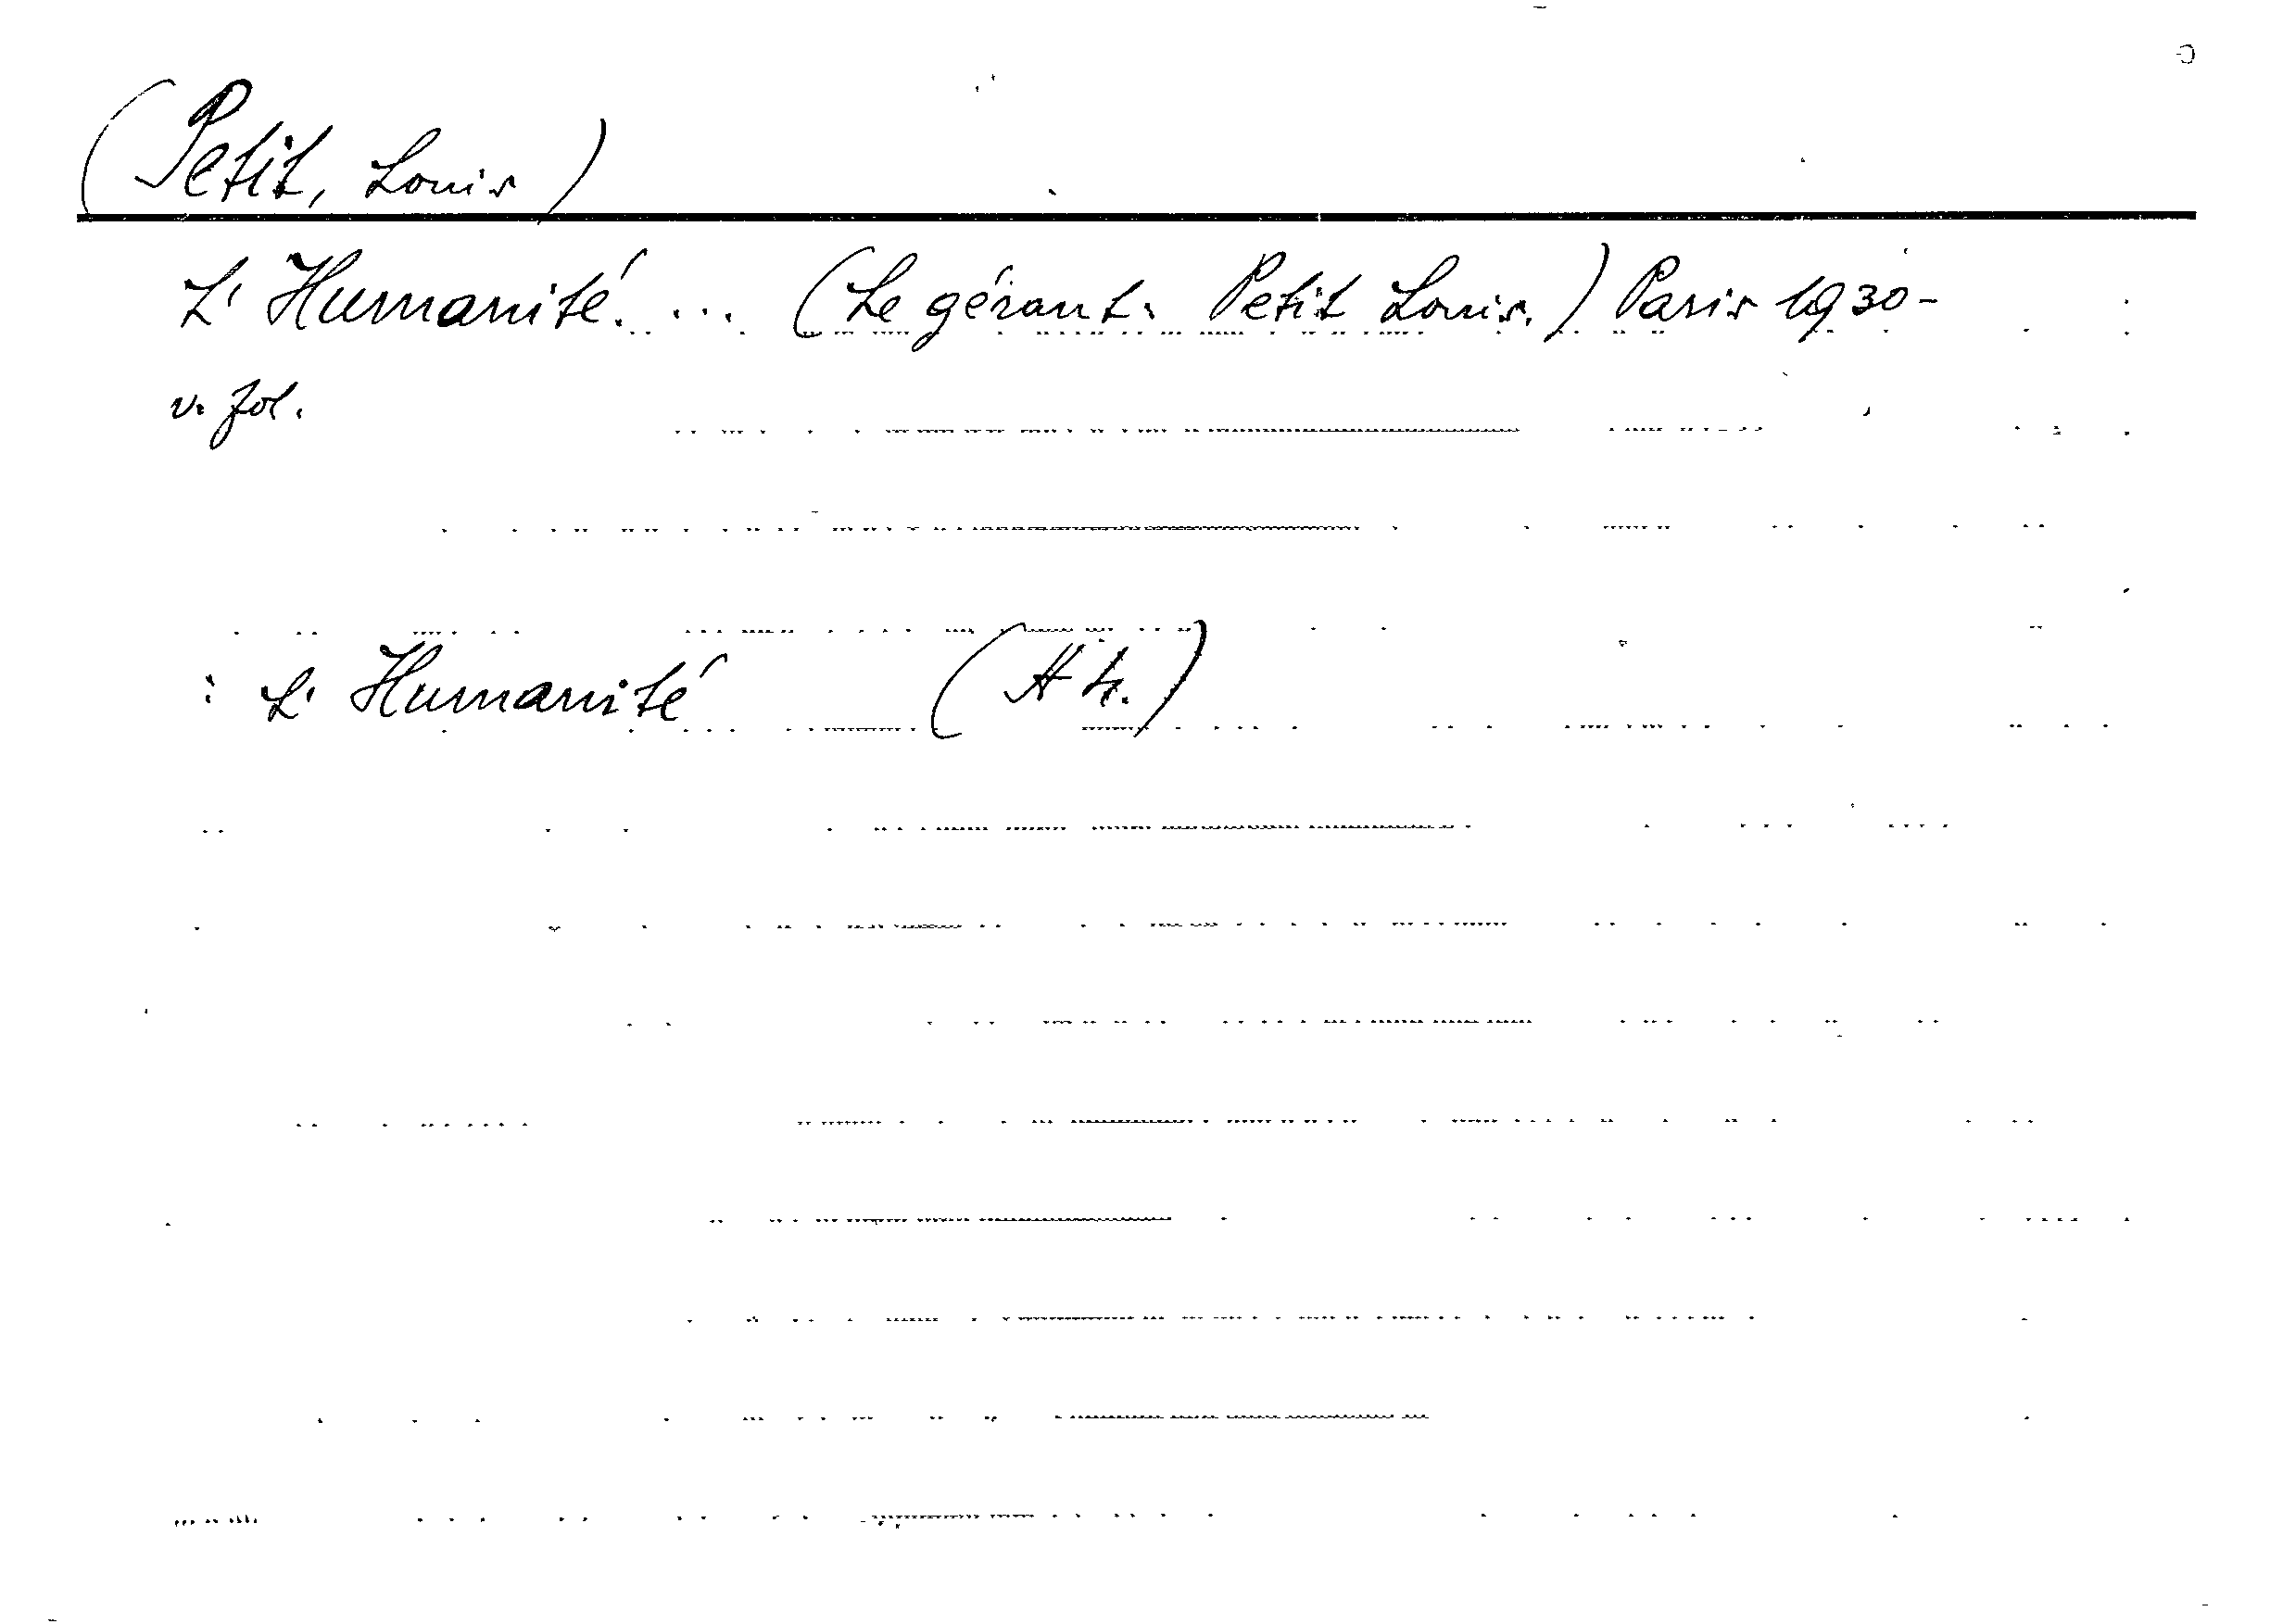 (Petit, Louis)
L' Humanité. ... (Le gérant: Petit Louis.) Paris 1930-
v. fol.
: L' Humanité